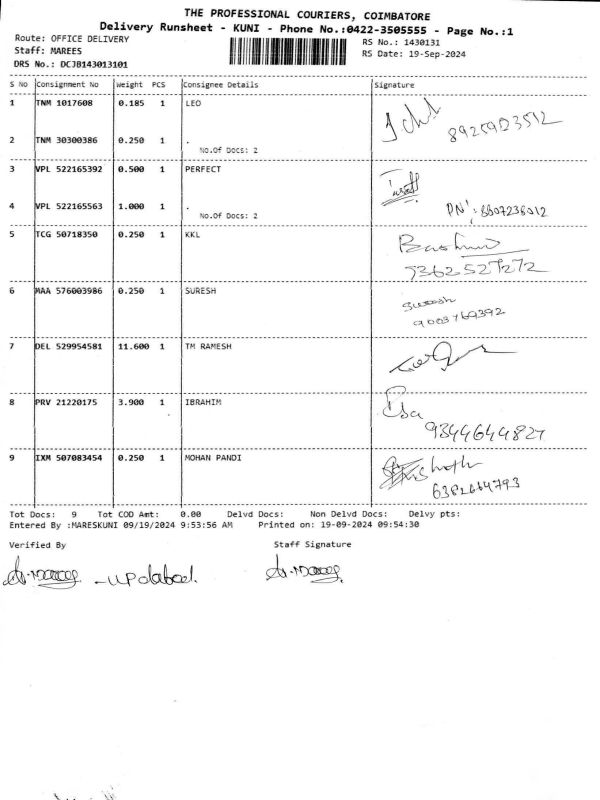 THE PROFESSIONAL COURIERS, COIMBATORE
Delivery Runsheet - KUNI - Phone No.:0422-3505555 - Page No.:1
Route: OFFICE DELIVERY
RS No.: 1430131
Staff: MAREES
RS Date: 19-Sep-2024
DRS No.: DCJB143013101
S No Consignment No Weight PCS Consignee Details Signature
1 TNM 1017608 0.185 1 LEO
2 TNM 30300386 0.250 1 .
No.Of Docs: 2
3 VPL 522165392 0.500 1 PERFECT
4 VPL 522165563 1.000 1 .
No.Of Docs: 2
PN: 8607236012
5 TCG 50718350 0.250 1 KKL
7362527272
6 MAA 576003986 0.250 1 SURESH
Suresh
9003769392
7 DEL 529954581 11.600 1 TM RAMESH
8 PRV 21220175 3.900 1 IBRAHIM
9344644827
9 IXM 507083454 0.250 1 MOHAN PANDI
6382664793
Tot Docs: 9 Tot COD Amt: 0.00 Delvd Docs: Non Delvd Docs: Delvy pts:
Entered By :MARESKUNI 09/19/2024 9:53:56 AM Printed on: 19-09-2024 09:54:30
Verified By Staff Signature
- updated.